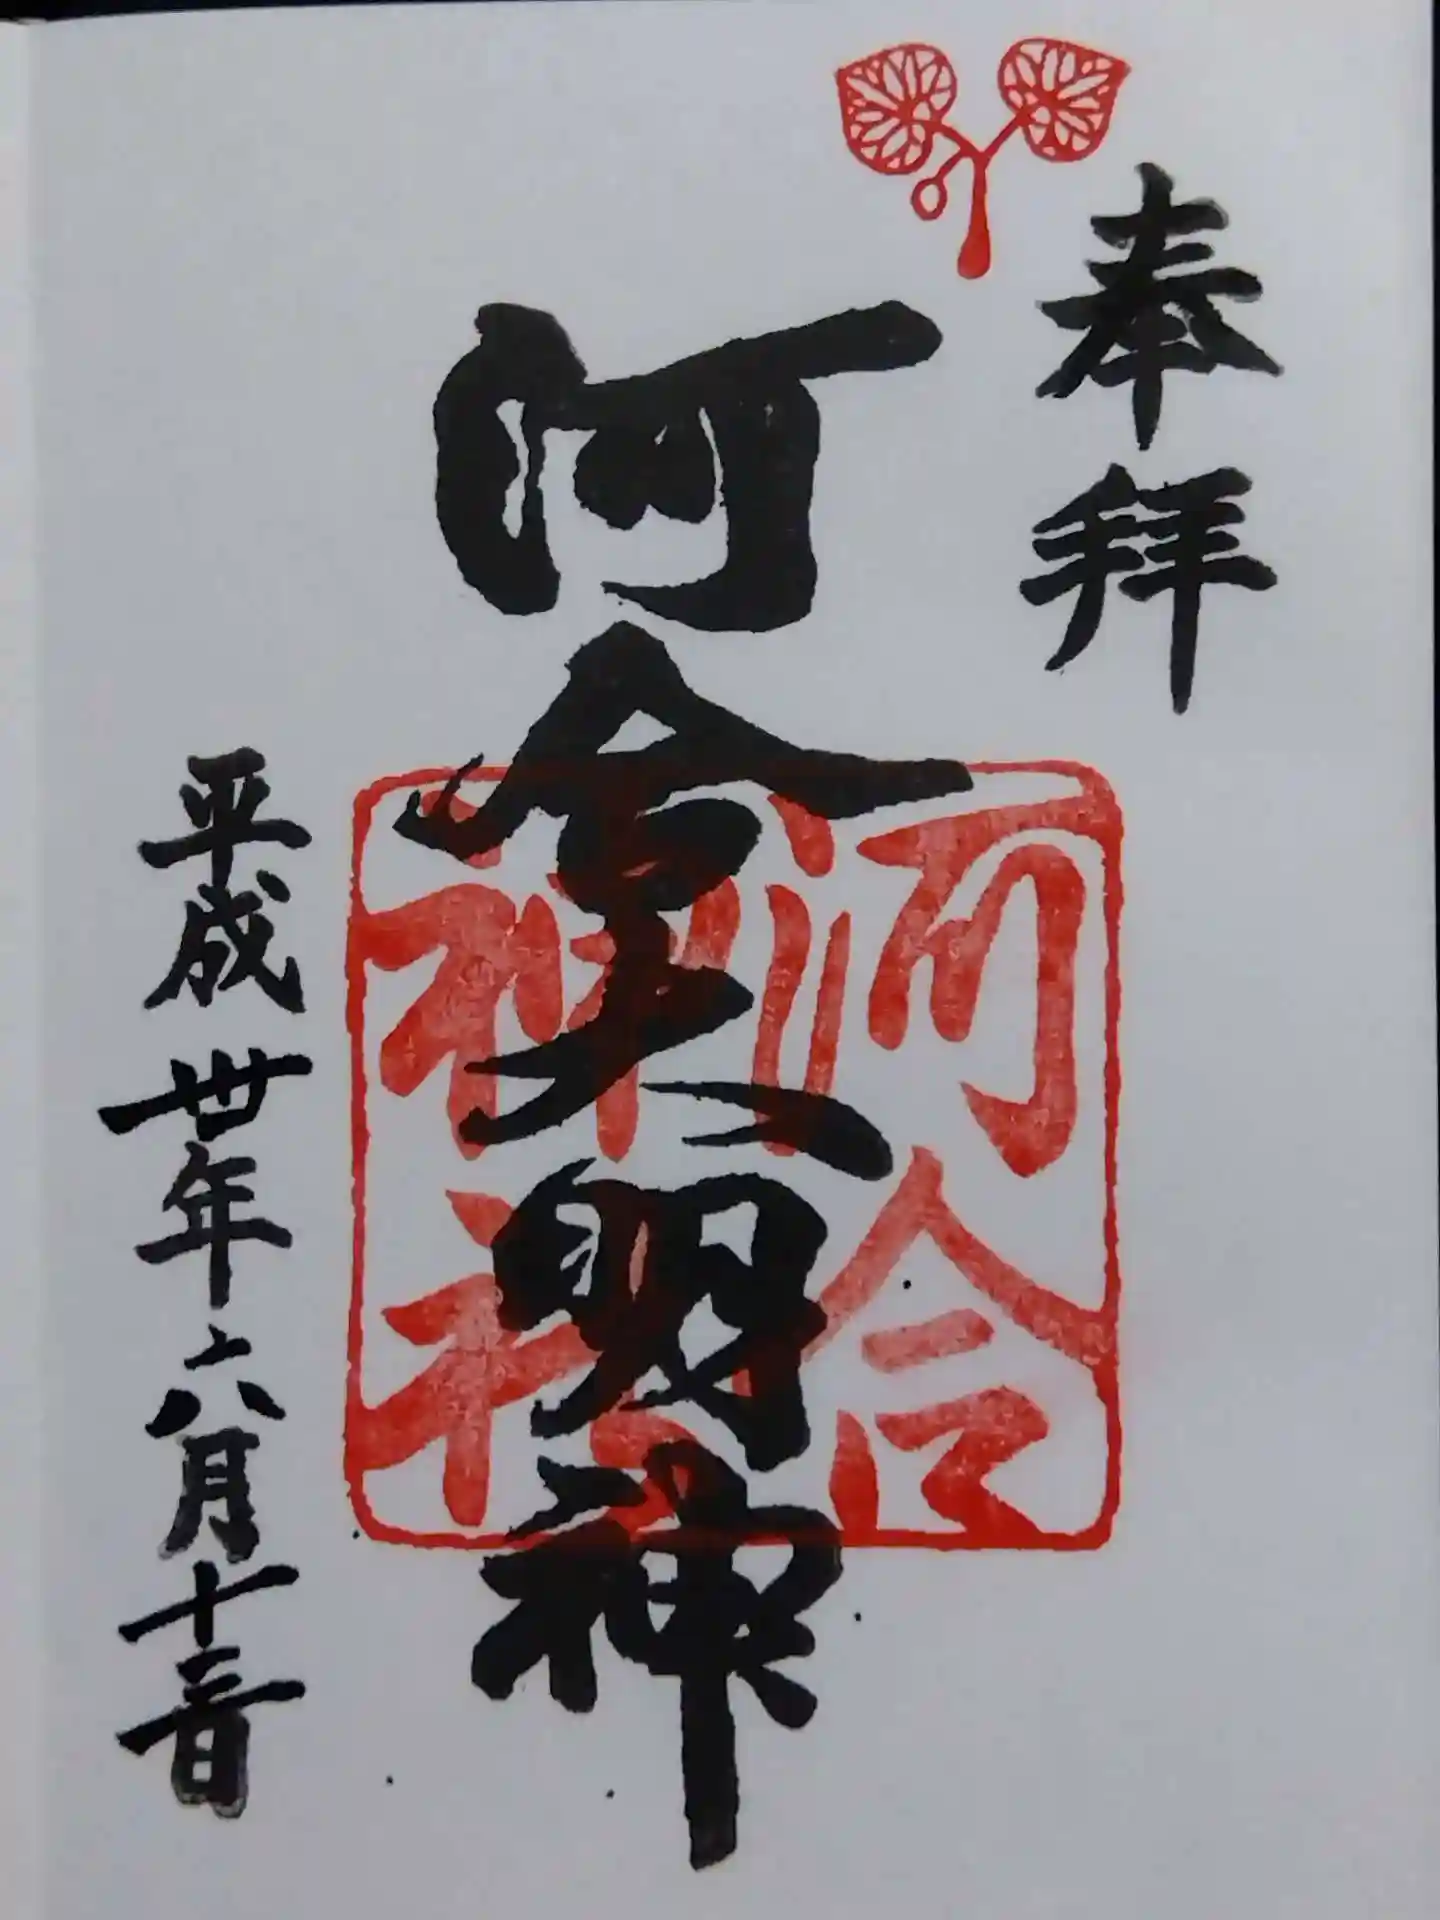 奉拝
河合大明神
平成卅年六月十三日
河合
神社